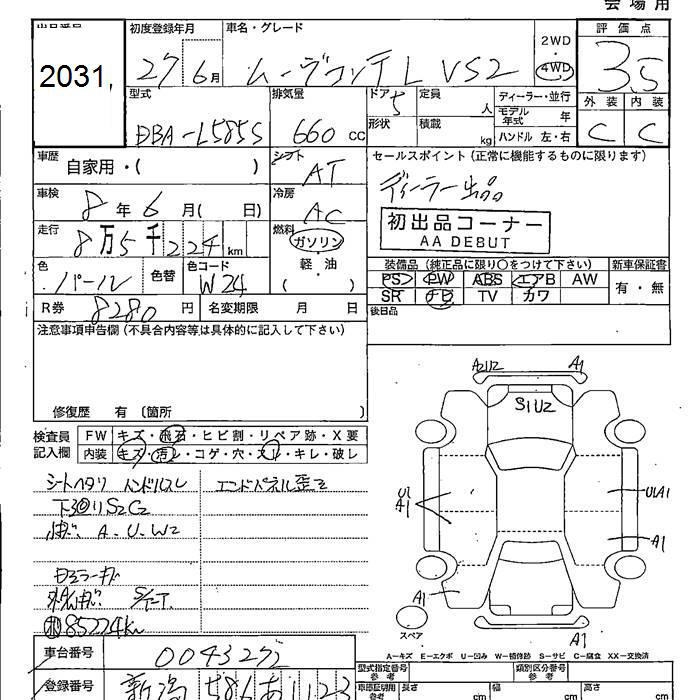 会場用
出品番号 初度登録年月 車名・グレード 2WD 評価点
2031, 27 6月 ムーヴコンテ L VS2 4WD 3.5
型式 排気量 ドア 5 定員 人 ディーラー・並行 外装 内装
DBA-L585S 660 CC 形状 積載 kg モデル年式 年 C C
ハンドル 左・右
車歴 自家用・( ) シフト AT セールスポイント(正常に機能するものに限ります)
車検 8年6月( 日) 冷房 AC ディーラー出品
走行 8万5千224km 燃料 ガソリン 初出品コーナー
軽・油 AA DEBUT
( )
色 パール 色替 色コード W24 装備品(純正品に限り○をつけて下さい) 新車保証書
PS PW ABS エアB AW 有・無
SR ナビ TV カワ
R券 8280円 名変期限 月 日 後日品
注意事項申告欄(不具合内容等は具体的に記入して下さい)
修復歴 有 (箇所 )
検査員 FW キズ・飛石・ヒビ割・リペア跡・X要
記入欄 内装 キズ・汚レ・コゲ・穴・スレ・キレ・破レ
シートヘタリ ハンドルスレ エンドパネル歪ミ
下回りS2C2
A.U.W2
85224km
A2U2 A1
S1U2
U1
A1
U1A1
A1
A1
A1
スペア
A=キズ E=エクボ U=凹み W=補修跡 S=サビ C=腐食 XX=交換済
車台番号 0043272
型式指定番号 参考 類別区分番号 参考
登録番号 新潟 586 あ 1123
車庫証明用 参考 長さ cm 幅 cm 高さ cm